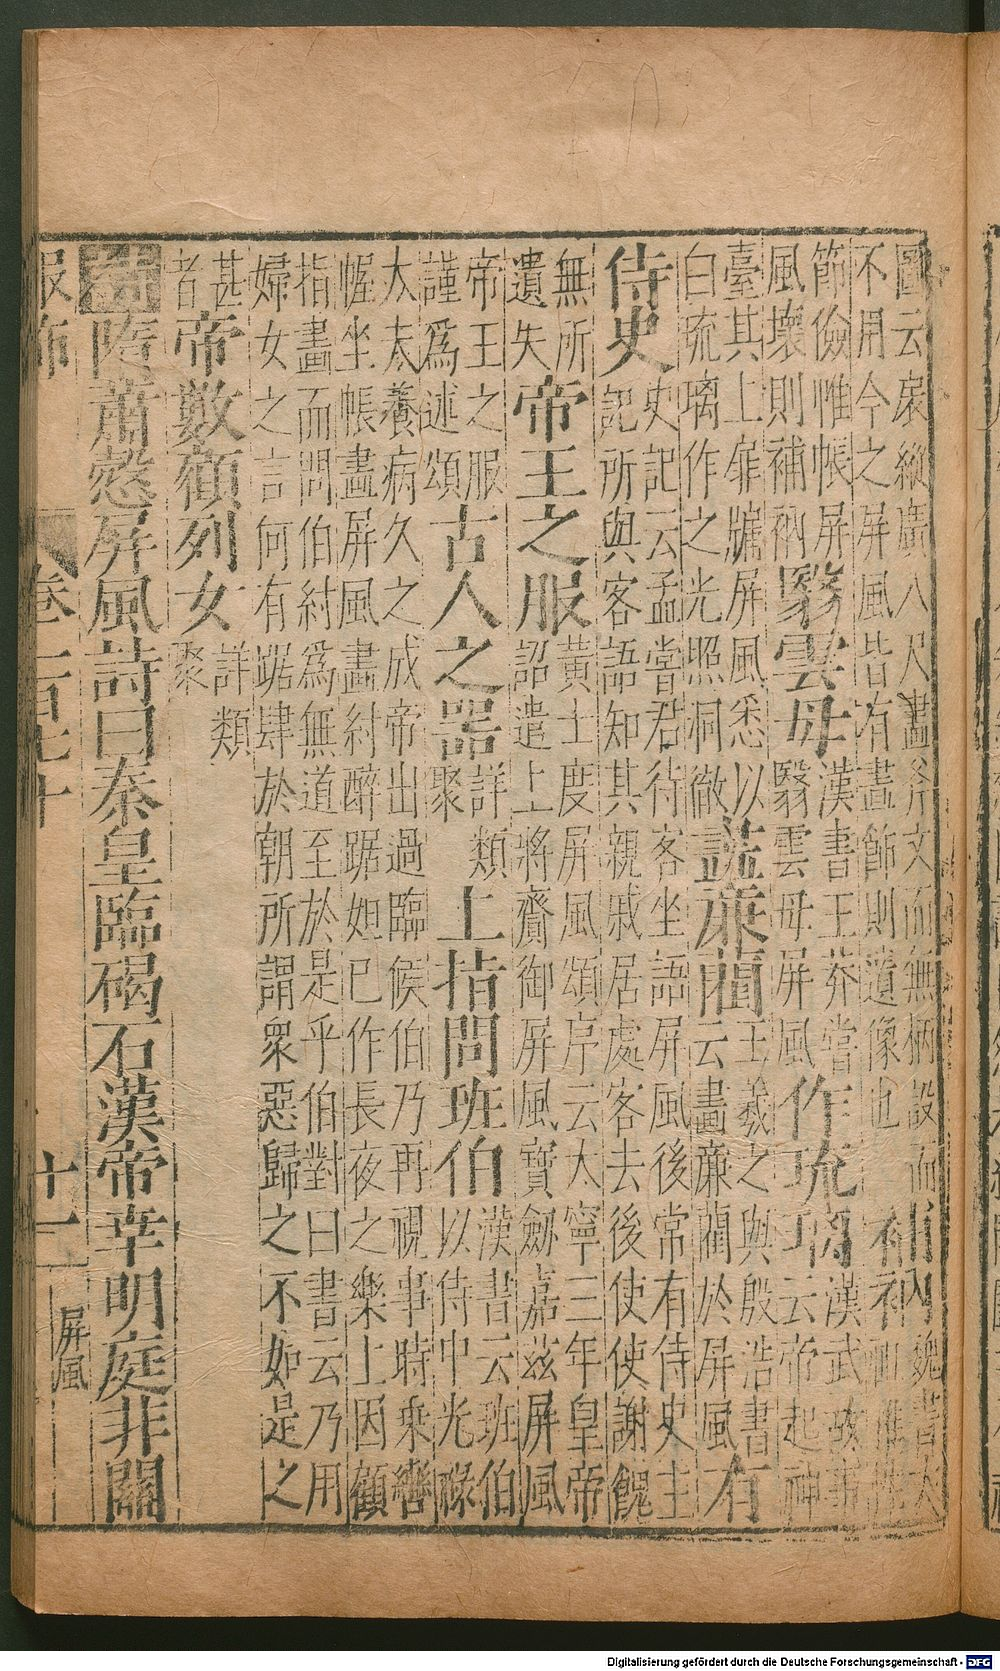 圖云扆縱廣八尺畫斧文而無柄設而
不用今之屏風皆有畫飾則遺像也
補衲
魏書太
祖雅性
節儉惟帳屏
風壞則補衲
翳雲母
漢書王莽嘗
翳雲母屏風
作琉璃
漢武故事
云帝起神
臺其上扉牖屏風悉以
白琉璃作之光照洞徹
誌廉藺
王羲之與殷浩書
云畫廉藺於屏風
有
侍史
史記云孟嘗君待客坐語屏風後常有侍史主
記所與客語知其親戚居處客去後使使謝餽
無所
遺失
帝王之服
黃土度屏風頌序云太寧三年皇帝
詔遣上將齎御屏風寶劔嘉茲屏風
帝王之服
謹為述頌
古人之器
詳類
聚
上指問班伯
漢書云班伯
以侍中光祿
大夫養病久之成帝出過臨候伯乃再視事時乘轝
幄坐帳畫屏風畫紂醉踞妲己作長夜之樂上因顧
指畫而問伯紂為無道至於是乎伯對曰書云乃用
婦女之言何有踞肆於朝所謂衆惡歸之不如是之
甚
者
帝數顧列女
詳類
聚
隋蕭慤屏風詩曰秦皇臨碣石漢帝幸明庭非關
服飾 卷一百七十 十一 屏風
Digitalisierung gefördert durch die Deutsche Forschungsgemeinschaft - DFG